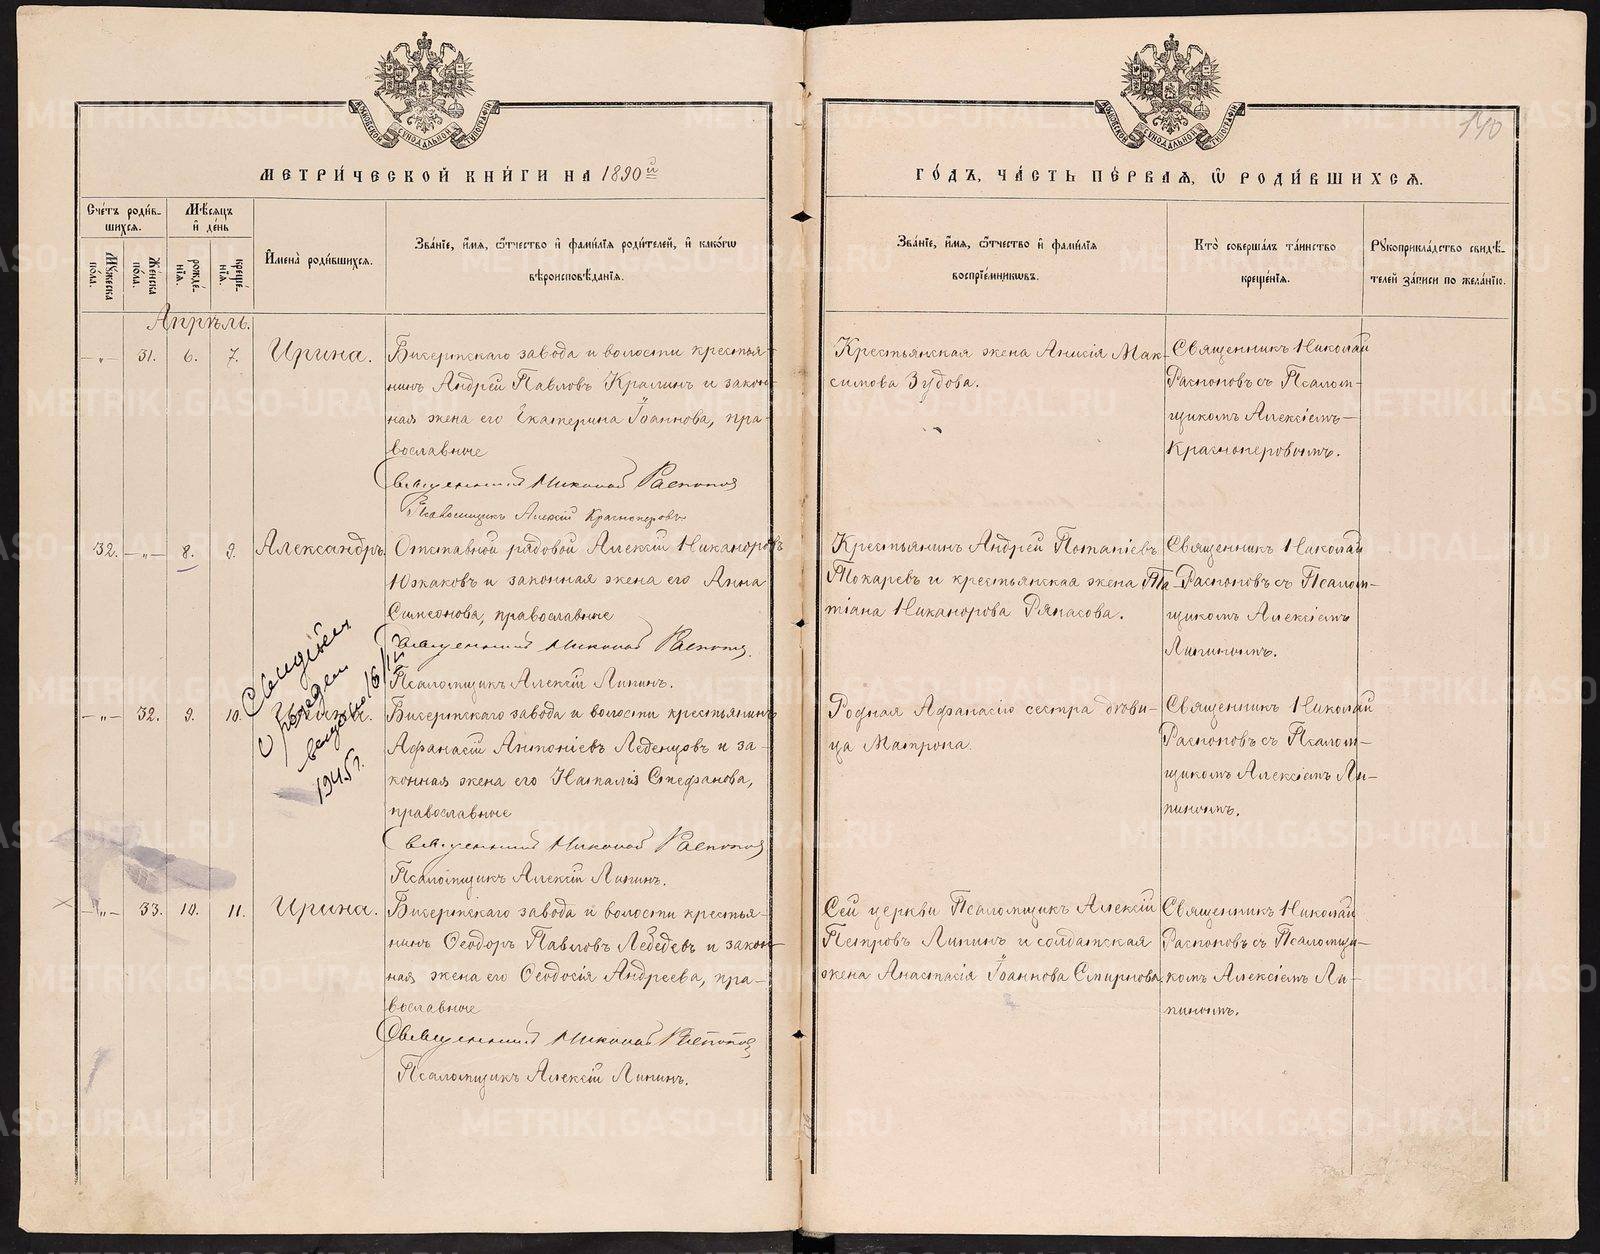 140
МЕТРИ́ЧЕСКОЙ КНИ́ГИ НА 1890й
ГО́ДЪ, ЧА́СТЬ ПЕ́РВАЯ, Ѿ РОДИ́ВШИХСѦ.
Сче́тъ роди́в-
шихсѧ.
Мꙋжеска по́ла.
Же́нска по́ла.
Мѣ́сѧцъ
и҆ де́нь
рожде́-
нїѧ.
креще́-
нїѧ.
И҆мена̀ роди́вшихсѧ.
Зва́нїе, и҆́мѧ, ѻ҆́тчество и҆ фами́лїѧ роди́телей, и҆ како́гѡ
вѣроисповѣ́данїѧ.
Зва́нїе, и҆́мѧ, ѻ҆́тчество и҆ фами́лїѧ
воспрїе́мникѡвъ.
Кто̀ соверша́лъ та́инство
креще́нїѧ.
Рꙋкоприкла́дство свидѣ́-
телей за́писи по жела́нїю.
Апрѣль.
—„— 31. 6. 7. Ирина.
Бисертскаго завода и волости крестья-
нинъ Андрей Павловъ Кралинъ и закон-
ная жена его Екатерина Іоаннова, пра-
вославные
Священникъ Николай Распоповъ
Псаломщикъ Алексій Красноперовъ
Крестьянская жена Анисія Мак-
симова Зудова.
Священникъ Николай
Распоповъ съ Псалом-
щикомъ Алексіемъ
Красноперовымъ.
32. —„— 8. 9. Александръ.
Отставной рядовой Алексій Никаноровъ
Южаковъ и законная жена его Анна
Симеонова, православные
Священникъ Николай Распоповъ
Псаломщикъ Алексій Липинъ.
Крестьянинъ Андрей Потапіевъ
Токаревъ и крестьянская жена Та-
тіана Никанорова Ряпасова.
Священникъ Николай
Распоповъ съ Псалом-
щикомъ Алексіемъ
Липинымъ.
1945г.
—„— 32. 9. 10.
Бисертскаго завода и волости крестьянинъ
Афанасій Антоніевъ Леденцовъ и за-
конная жена его Наталія Стефанова,
православные
Священникъ Николай Распоповъ
Псаломщикъ Алексій Липинъ.
Родная Афанасію сестра дѣви-
ца Матрона.
Священникъ Николай
Распоповъ съ Псалом-
щикомъ Алексіемъ Ли-
пинымъ.
—„— 33. 10. 11. Ирина.
Бисертскаго завода и волости крестья-
нинъ Ѳеодоръ Павловъ Лебедевъ и закон-
ная жена его Ѳеодосія Андреева, пра-
вославные
Священникъ Николай Распоповъ
Псаломщикъ Алексій Липинъ.
Сей церкви Псаломщикъ Алексій
Петровъ Липинъ и солдатская
жена Анастасія Іоаннова Смирнова
Священникъ Николай
Распоповъ съ Псаломщи-
комъ Алексіемъ Ли-
пинымъ.
METRIKI.GASO-URAL.RU